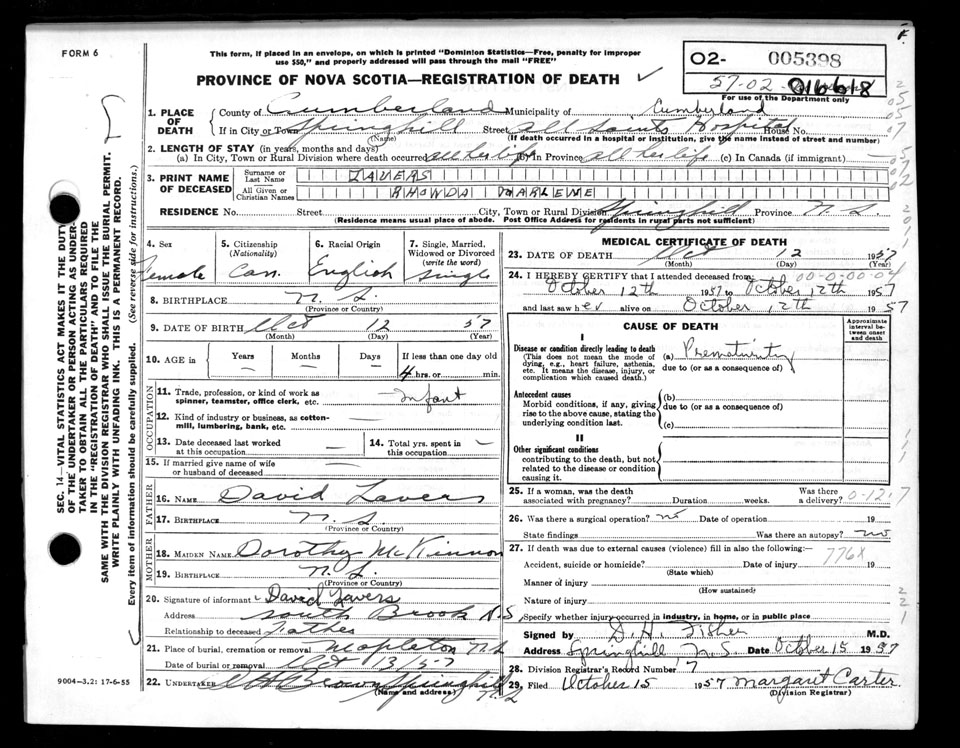 FORM 6
This form, if placed in an envelope, on which is printed "Dominion Statistics—Free, penalty for improper
use $50," and properly addressed will pass through the mail "FREE"
PROVINCE OF NOVA SCOTIA—REGISTRATION OF DEATH
02- 005398
57-02 016618
For use of the Department only
SEC. 14—VITAL STATISTICS ACT MAKES IT THE DUTY
OF THE UNDERTAKER OR PERSON ACTING AS UNDER-
TAKER TO OBTAIN ALL THE PARTICULARS REQUIRED
IN THE "REGISTRATION OF DEATH" AND TO FILE THE
SAME WITH THE DIVISION REGISTRAR WHO SHALL ISSUE THE BURIAL PERMIT.
WRITE PLAINLY WITH UNFADING INK. THIS IS A PERMANENT RECORD.
Every item of information should be carefully supplied. (See reverse side for instructions.)
1. PLACE OF DEATH County of Cumberland Municipality of Cumberland
If in City or Town Springhill Street All Saints Hospital House No.
(Name) (If death occurred in a hospital or institution, give the name instead of street and number)
2. LENGTH OF STAY (in years, months and days)
(a) In City, Town or Rural Division where death occurred all her life (b) in Province all her life (c) In Canada (if immigrant) —
3. PRINT NAME OF DECEASED Surname or Last Name LAVERS
All Given or Christian Names RHONDA DARLENE
RESIDENCE No. Street City, Town or Rural Division Springhill Province N.S.
(Residence means usual place of abode. Post Office Address for residents in rural parts not sufficient)
4. Sex 5. Citizenship (Nationality) 6. Racial Origin 7. Single, Married, Widowed or Divorced (write the word)
Female Can. English Single
8. BIRTHPLACE N.S.
(Province or Country)
9. DATE OF BIRTH Oct 12 57
(Month) (Day) (Year)
10. AGE in Years Months Days If less than one day old
4 hrs. or min.
OCCUPATION
11. Trade, profession, or kind of work as spinner, teamster, office clerk, etc. Infant
12. Kind of industry or business, as cotton-mill, lumbering, bank, etc. —
13. Date deceased last worked at this occupation — 14. Total yrs. spent in this occupation —
15. If married give name of wife or husband of deceased —
FATHER
16. NAME David Lavers
17. BIRTHPLACE N.S.
(Province or Country)
MOTHER
18. MAIDEN NAME Dorothy McKinnon
19. BIRTHPLACE N.S.
(Province or Country)
20. Signature of informant David Lavers
Address South Brook N.S
Relationship to deceased Father
21. Place of burial, cremation or removal Mapleton N.S
Date of burial or removal Oct 13/57
22. UNDERTAKER Brown Springhill N.S
(Name and address)
9004-3.2: 17-6-55
MEDICAL CERTIFICATE OF DEATH
23. DATE OF DEATH Oct 12 1957
(Month) (Day) (Year)
00-0-00-04
24. I HEREBY CERTIFY that I attended deceased from
October 12th 1957 to October 12th 1957
and last saw her alive on October 12th 1957
CAUSE OF DEATH
Approximate interval between onset and death
I
Disease or condition directly leading to death (a) Prematurity
(This does not mean the mode of dying, e.g., heart failure, asthenia, etc. It means the disease, injury, or complication which caused death.)
due to (or as a consequence of)
Antecedent causes
Morbid conditions, if any, giving rise to the above cause, stating the underlying condition last.
(b)
due to (or as a consequence of)
(c)
II
Other significant conditions
contributing to the death, but not related to the disease or condition causing it.
25. If a woman, was the death associated with pregnancy? Duration weeks. Was there a delivery?
0-12-7
26. Was there a surgical operation? no Date of operation 19
State findings Was there an autopsy? no
27. If death was due to external causes (violence) fill in also the following:—
776X
Accident, suicide or homicide? Date of injury 19
(State which)
Manner of injury
(How sustained)
Nature of injury
Specify whether injury occurred in industry, in home, or in public place
Signed by D. H. Fisher M.D.
Address Springhill N.S. Date October 15 1957
28. Division Registrar's Record Number 7
29. Filed October 15 1957 Margaret Carter
(Division Registrar)